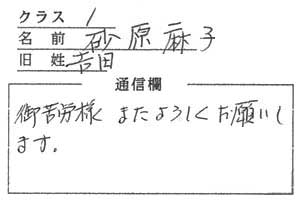 クラス 1
名前 砂原麻子
旧姓 吉田
通信欄
御苦労様 またよろしくお願いし
ます。